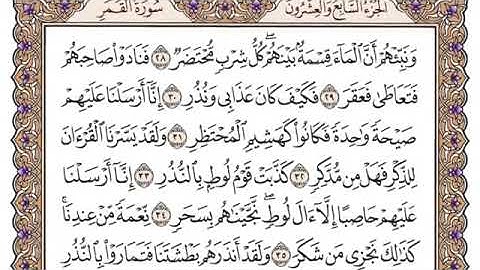 الجزء السابع والعشرون سورة القمر
وَنَبِّئْهُمْ أَنَّ الْمَاءَ قِسْمَةٌ بَيْنَهُمْ كُلُّ شِرْبٍ مُحْتَضَرٌ ٢٨ فَنَادَوْا صَاحِبَهُمْ
فَتَعَاطَى فَعَقَرَ ٢٩ فَكَيْفَ كَانَ عَذَابِي وَنُذُرِ ٣٠ إِنَّا أَرْسَلْنَا عَلَيْهِمْ
صَيْحَةً وَاحِدَةً فَكَانُوا كَهَشِيمِ الْمُحْتَظِرِ ٣١ وَلَقَدْ يَسَّرْنَا الْقُرْءَانَ
لِلذِّكْرِ فَهَلْ مِن مُّدَّكِرٍ ٣٢ كَذَّبَتْ قَوْمُ لُوطٍ بِالنُّذُرِ ٣٣ إِنَّا أَرْسَلْنَا
عَلَيْهِمْ حَاصِبًا إِلَّا ءَالَ لُوطٍ نَّجَّيْنَاهُم بِسَحَرٍ ٣٤ نِّعْمَةً مِّنْ عِندِنَا
كَذَلِكَ نَجْزِي مَن شَكَرَ ٣٥ وَلَقَدْ أَنذَرَهُم بَطْشَتَنَا فَتَمَارَوْا بِالنُّذُرِ